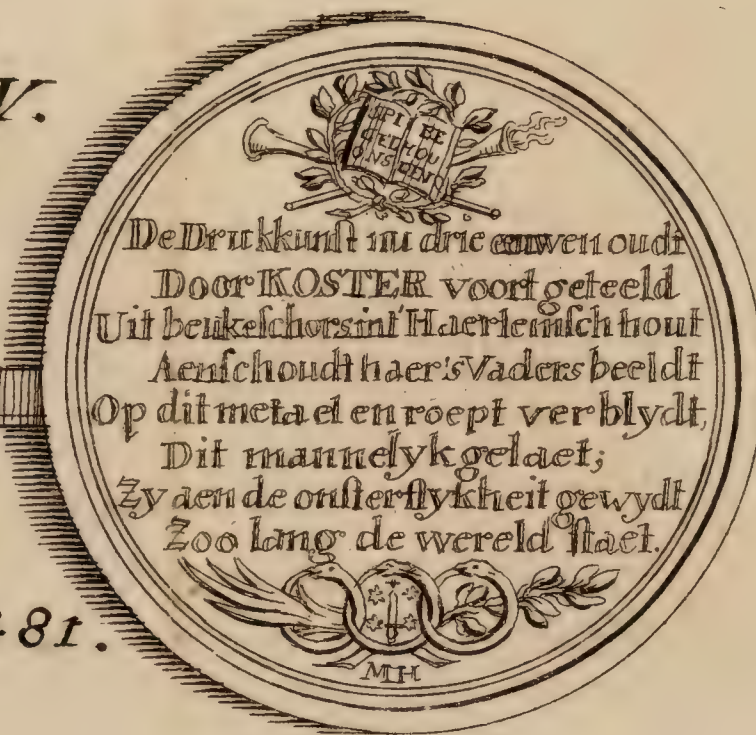 V.
SPI BE
GEL HOU
ONS DEN
De Drukkunst nu drie eeuwen oudt
Door KOSTER voort geteeld
Uit beukeschors int' Haerlemsch hout
Aenschoudt haer's Vaders beeldt
Op dit metael en roept verblydt,
Dit mannelyk gelaet;
Zy aen de onsterflykheit gewydt
Zoo lang de wereld staet.
81.
MH